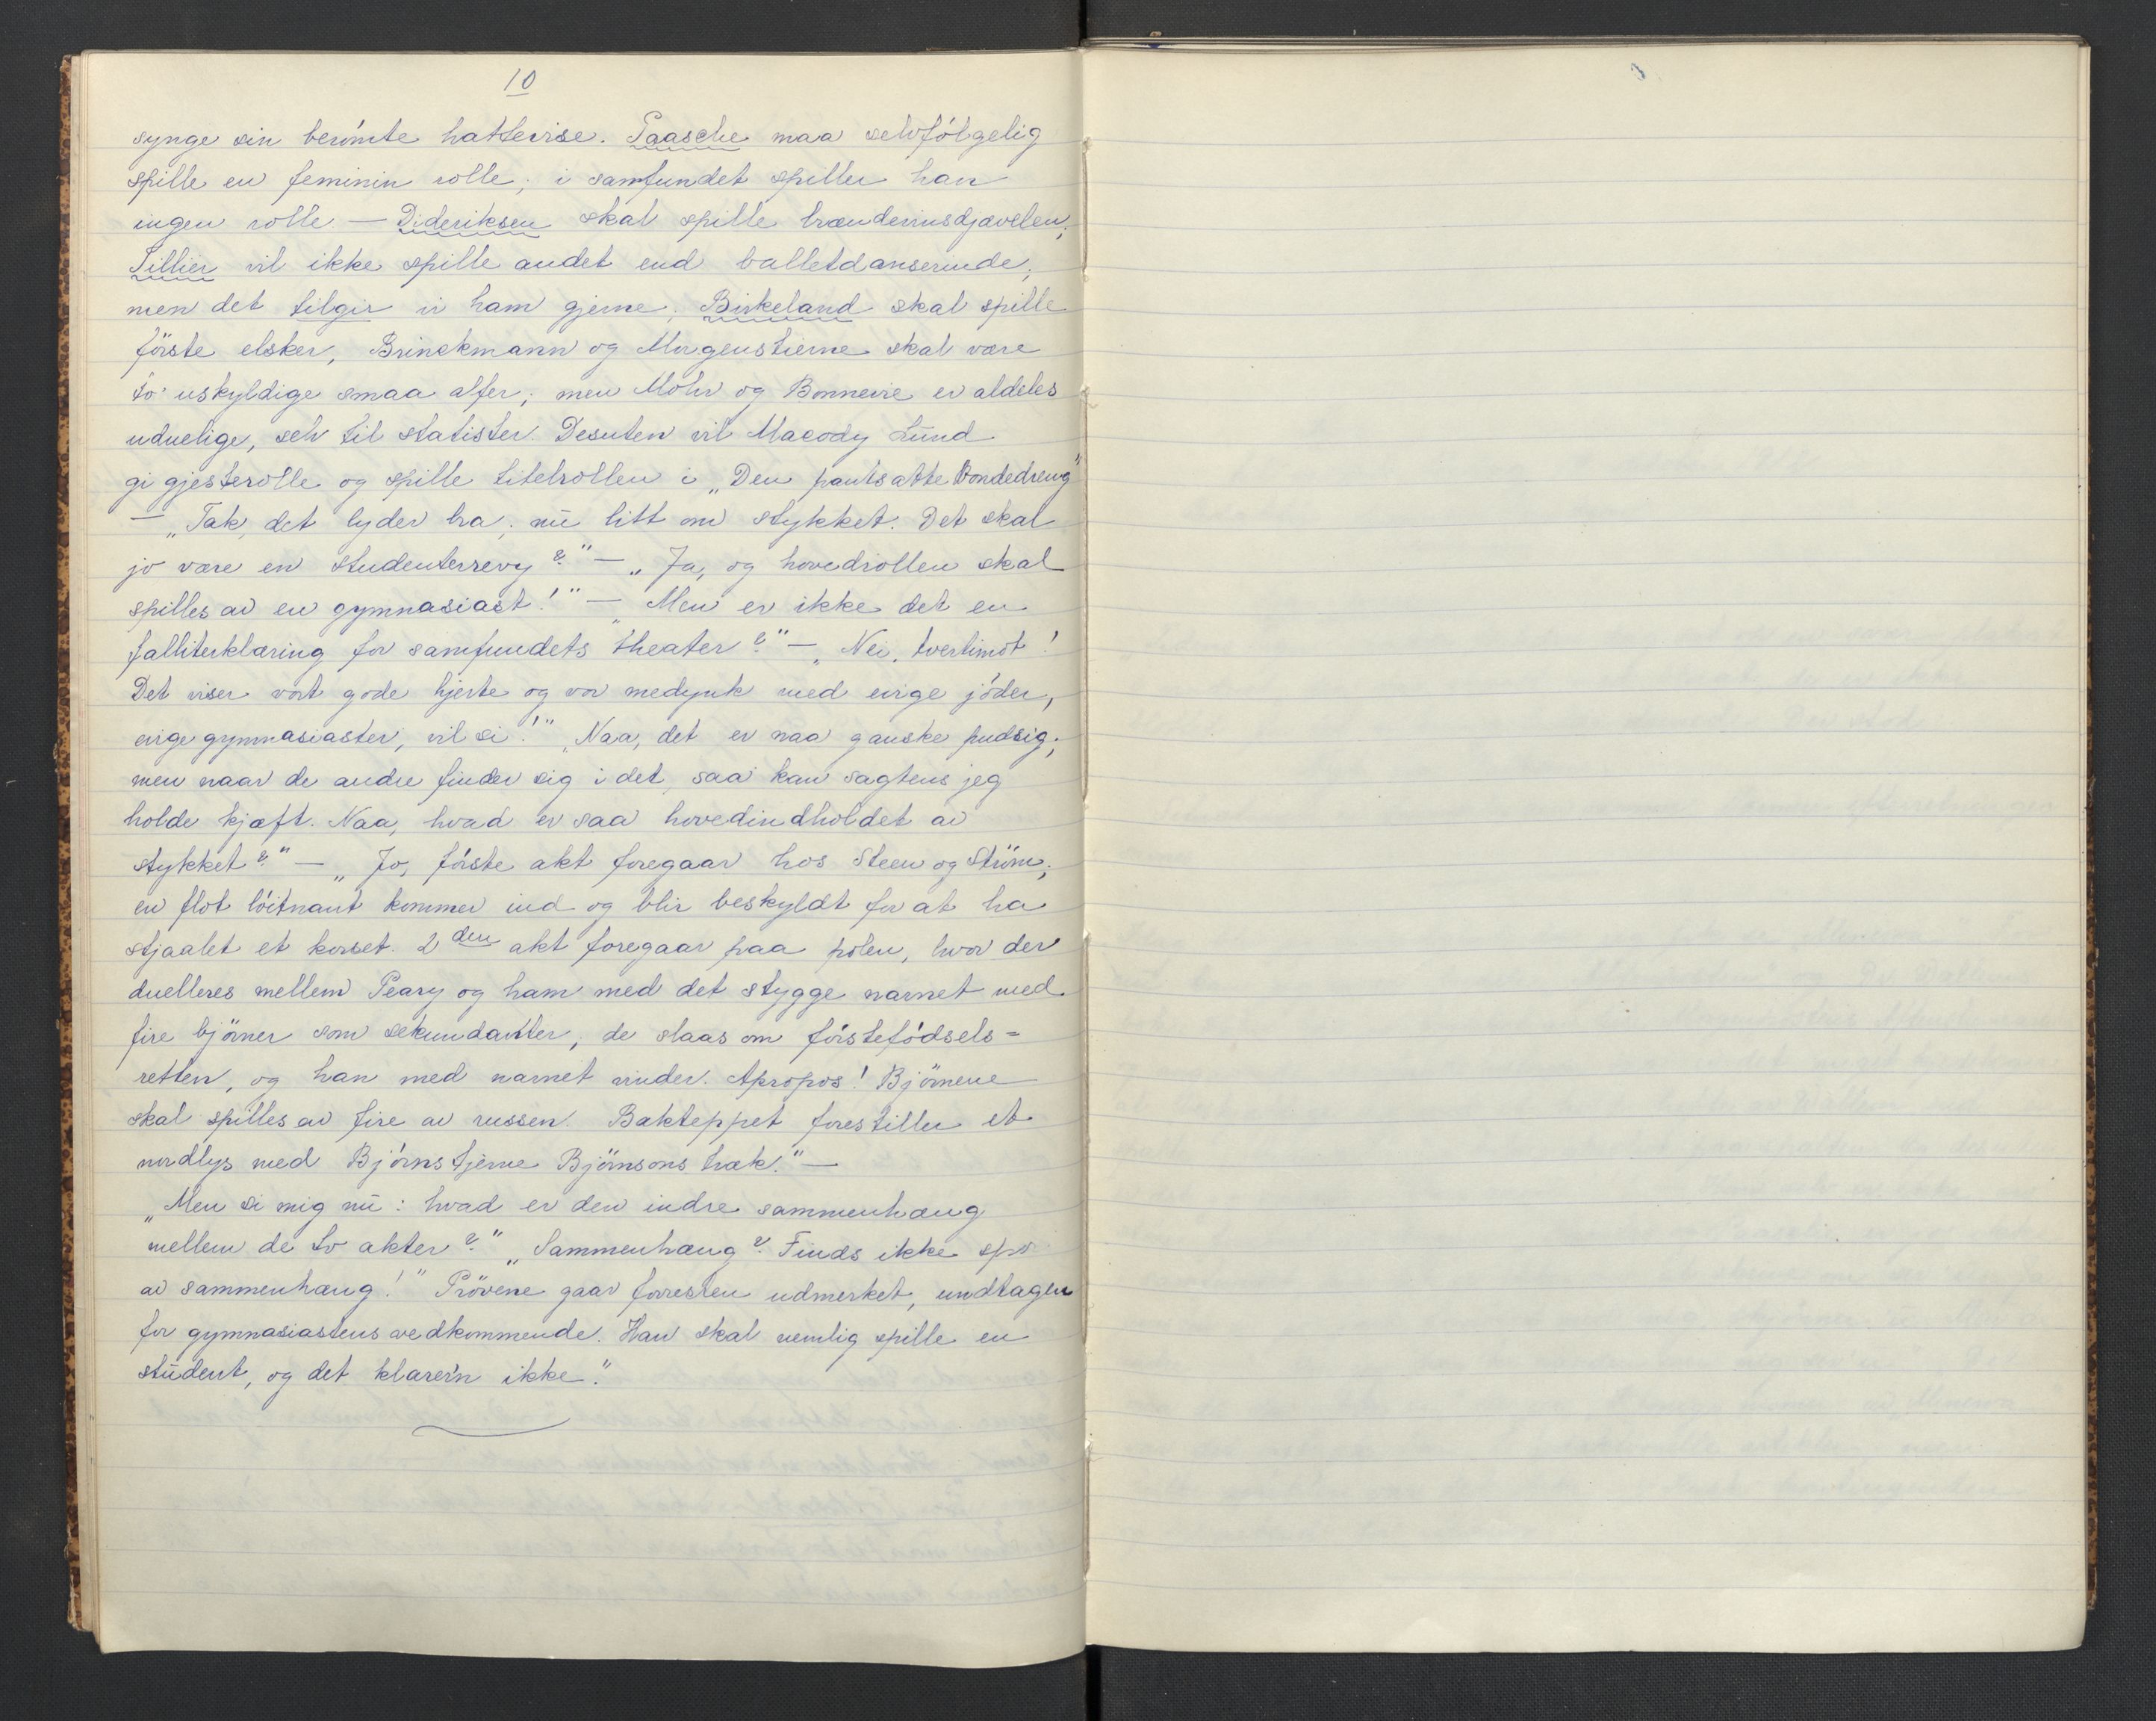 10
synge sin berömte hattevise. Paasche maa selvfölgelig
spille en feminin rolle; i samfundet spiller han
ingen rolle. — Dideriksen skal spille brændevinsdjævelen;
Tillier vil ikke spille andet end balletdanserinde,
men det tilgir vi ham gjerne; Birkeland skal spille
förste elsker, Brinckmann og Morgenstierne skal være
to uskyldige smaa alfer; men Mohr og Bonnevie er aldeles
uduelige, selv til statister. Desuten vil Macody Lund
gi gjesterolle og spille titelrollen i „Den pantsatte Bondedreng"
— „Tak, det lyder bra; nu litt om stykket. Det skal
jo være en studenterrevy?" — „Ja, og hovedrollen skal
spilles av en gymnasiast!" — „Men er ikke det en
falliterklæring for samfundets theater?" — „Nei, tvertimot!
Det viser vort gode hjerte og vor medynk med evige jöder,
evige gymnasiaster, vil si!" „Naa, det er naa ganske pudsig;
men naar de andre finder sig i det, saa kan sagtens jeg
holde kjæft. Naa, hvad er saa hovedindholdet av
stykket?" — „Jo, förste akt foregaar hos Steen og Ström;
en flot löitnant kommer ind og blir beskyldt for at ha
stjaalet et korset. 2den akt foregaar paa polen, hvor der
duelleres mellem Peary og ham med det stygge navnet med
fire björner som sekundanter, de slaas om förstefödsels=
retten, og han med navnet vinder. Apropos! Björnene
skal spilles av fire av russen. Bakteppet forestiller et
nordlys med Björnstjerne Björnsons træk." —
„Men si mig nu: hvad er den indre sammenhæng
mellem de to akter?" „Sammenhæng? Finds ikke spor
av sammenhæng!" Prövene gaar forresten udmerket, undtagen
for gymnasiastens vedkommende. Han skal nemlig spille en
student, og det klarer'n ikke."